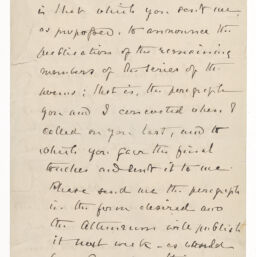 is that which you sent me
as proposed, to announce the
publication of the remaining
members of the series of the
poems; that is, the paragraph
you and I concocted when I
called on you last, and to
which you gave the final
touches and sent it to me.
Please send me the paragraph
in the form desired and
the Athenaeum will publish
it next week – as would